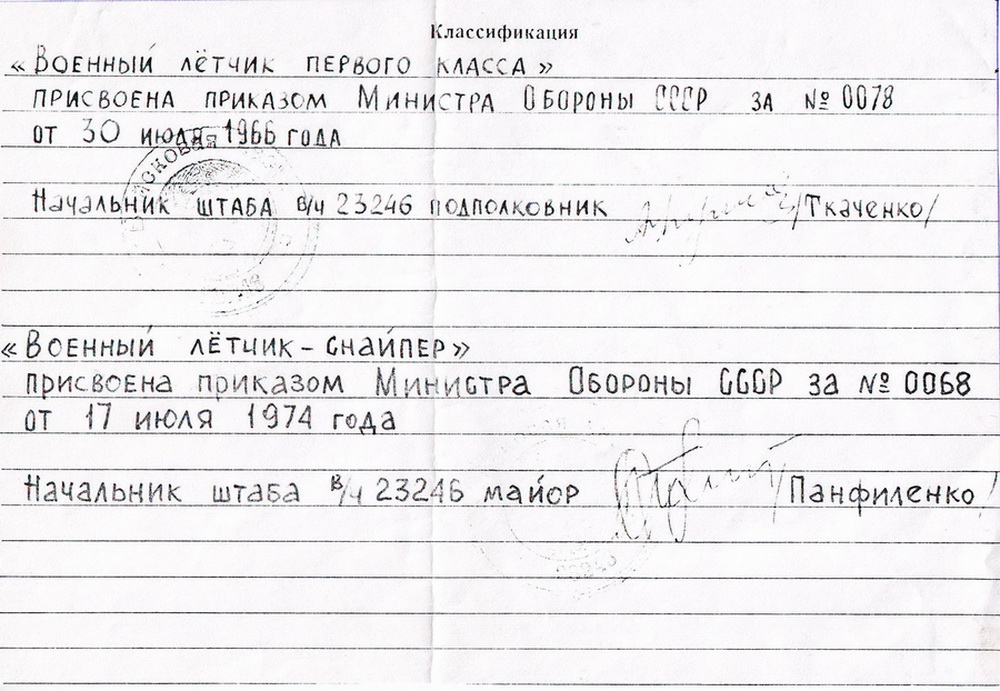 Классификация
«Военный лётчик первого класса»
присвоена приказом Министра Обороны СССР за №0078
от 30 июля 1966 года
Начальник штаба в/ч 23246 подполковник /Ткаченко/
«Военный лётчик-снайпер»
присвоена приказом Министра Обороны СССР за №0068
от 17 июля 1974 года
Начальник штаба в/ч 23246 майор /Панфиленко/